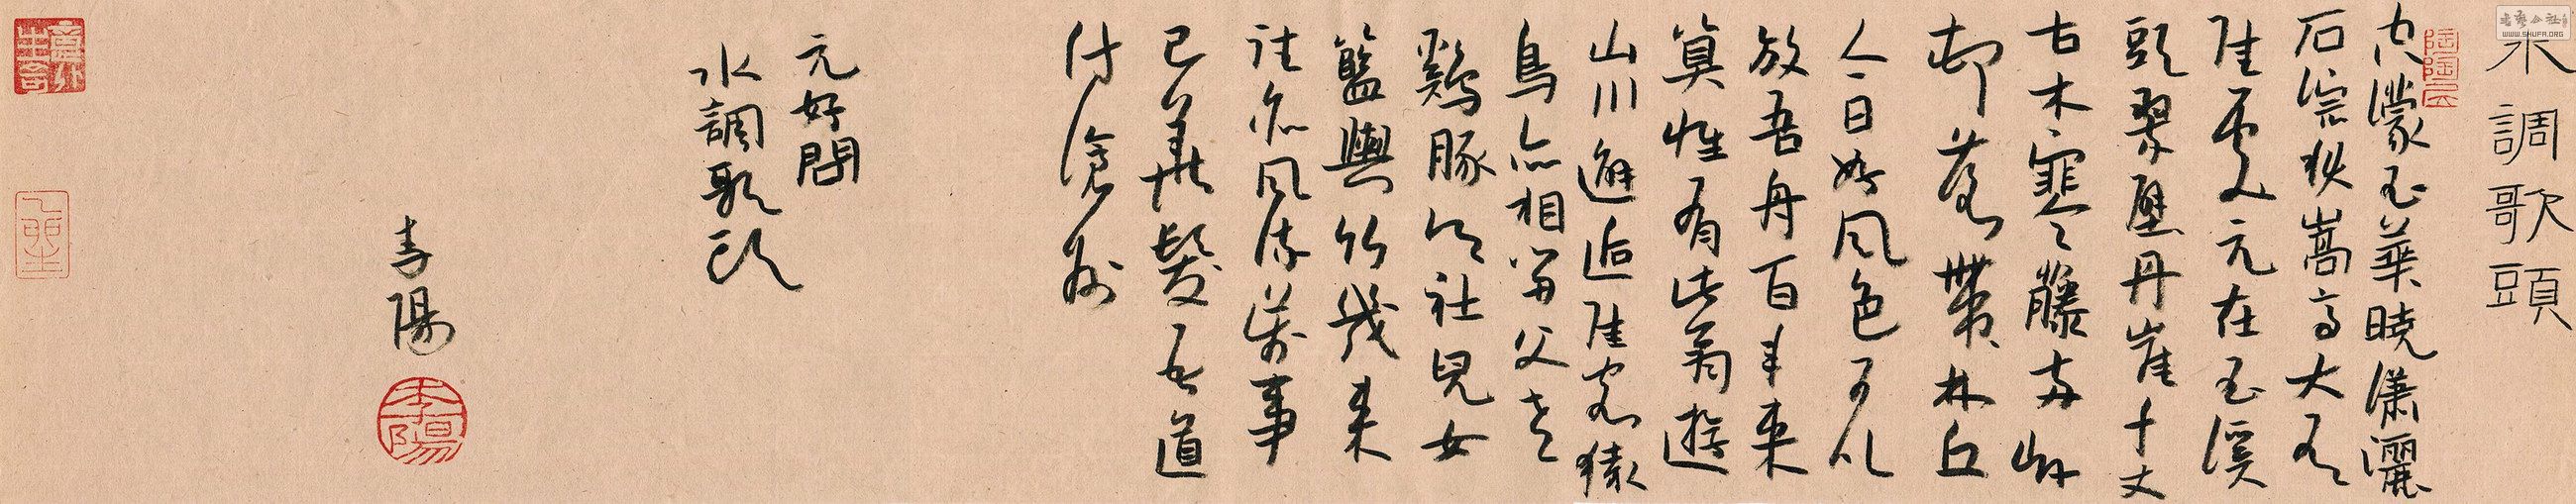 水調歌頭
空濛玉華曉瀟灑
石淙秋嵩高大有
佳處元在玉溪
頭翠壁丹崖千丈
古木寒藤兩岸
邨落帶林丘
今日好風色可以
放吾舟百年來
算惟有此翁遊
山川邂逅佳客猿
鳥亦相留父老
鷄豚鄉社兒女
籃輿竹幾來
往亦風流萬事
已華髮吾道
付滄洲
元好問
水調歌頭
李陽
李陽
WWW.SHUFA.ORG